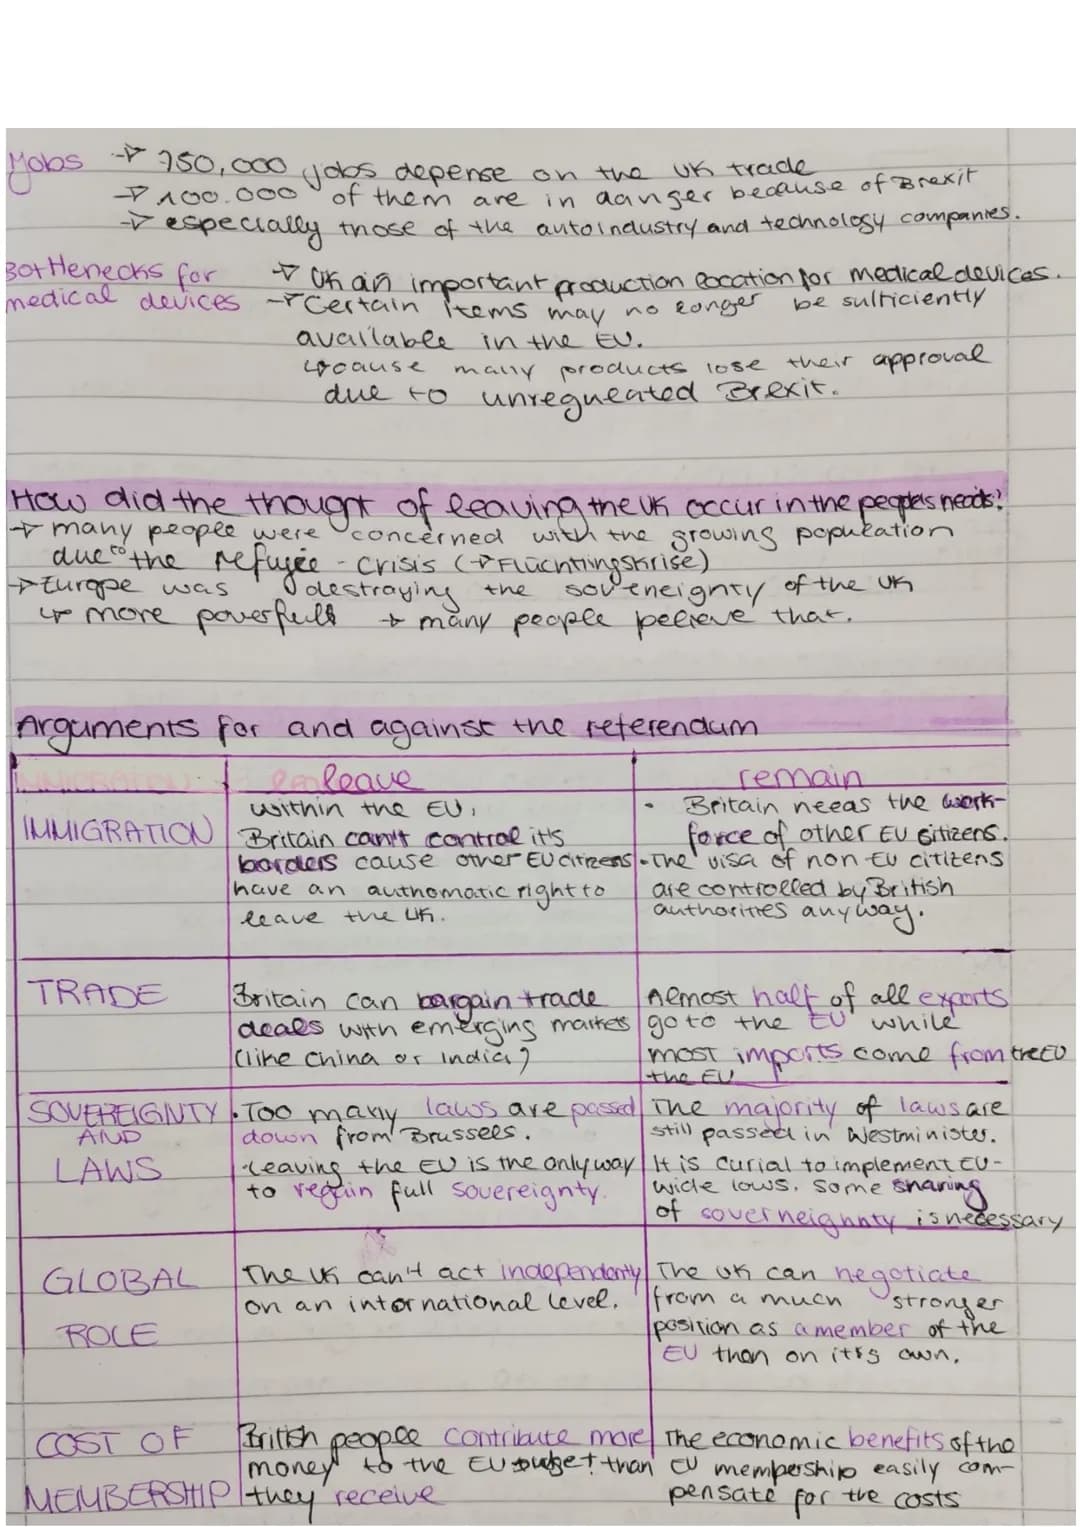 Jobs → 750,000 jobs depense on the UK trade
→ 100.000 of them are in danger because of Brexit
→ especially those of the autoindustry and technology companies.
Bottlenecks for → UK an important production location for medical devices.
medical devices → Certain items may no longer be sufficiently
available in the EU.
↳ cause many products lose their approval
due to unregueated Brexit.
How did the thought of leaving the UK occur in the peoples needs?
→ many people were concerned with the growing population
due to the refugee - crisis (→ Flüchtlingskrise)
→ Europe was destraying the soveneignty of the UK
↳ more powerfull → many people believe that.
Arguments for and against the referendum
leave remain
IMMIGRATION
within the EU,
Britain can't control it's
borders cause other EU citizens
have an authomatic right to
leave the UK.
• Britain needs the work-
force of other EU sitizens.
• The visa of non EU citizens
are controlled by British
authorities anyway.
TRADE
Britain can bargain trade
deals with emerging markets
(like China or India)
Almost half of all exports
go to the EU while
most imports come from the EU
the EU
SOVEREIGNTY
AND
LAWS
• Too many laws are passed
down from Brussels.
• Leaving the EU is the only way
to regain full sovereignty.
The majority of laws are
still passed in Westminister.
It is curial to implement EU-
wide lows. Some sharing
of souverneignnty is necessary
GLOBAL
ROLE
The UK can't act independently
on an international level.
The UK can negotiate
from a much stronger
position as a member of the
EU than on it's own.
COST OF
MEMBERSHIP
British people contribute more
money to the EU budget than
they receive
The economic benefits of the
EU membership easily com-
pensate for the costs